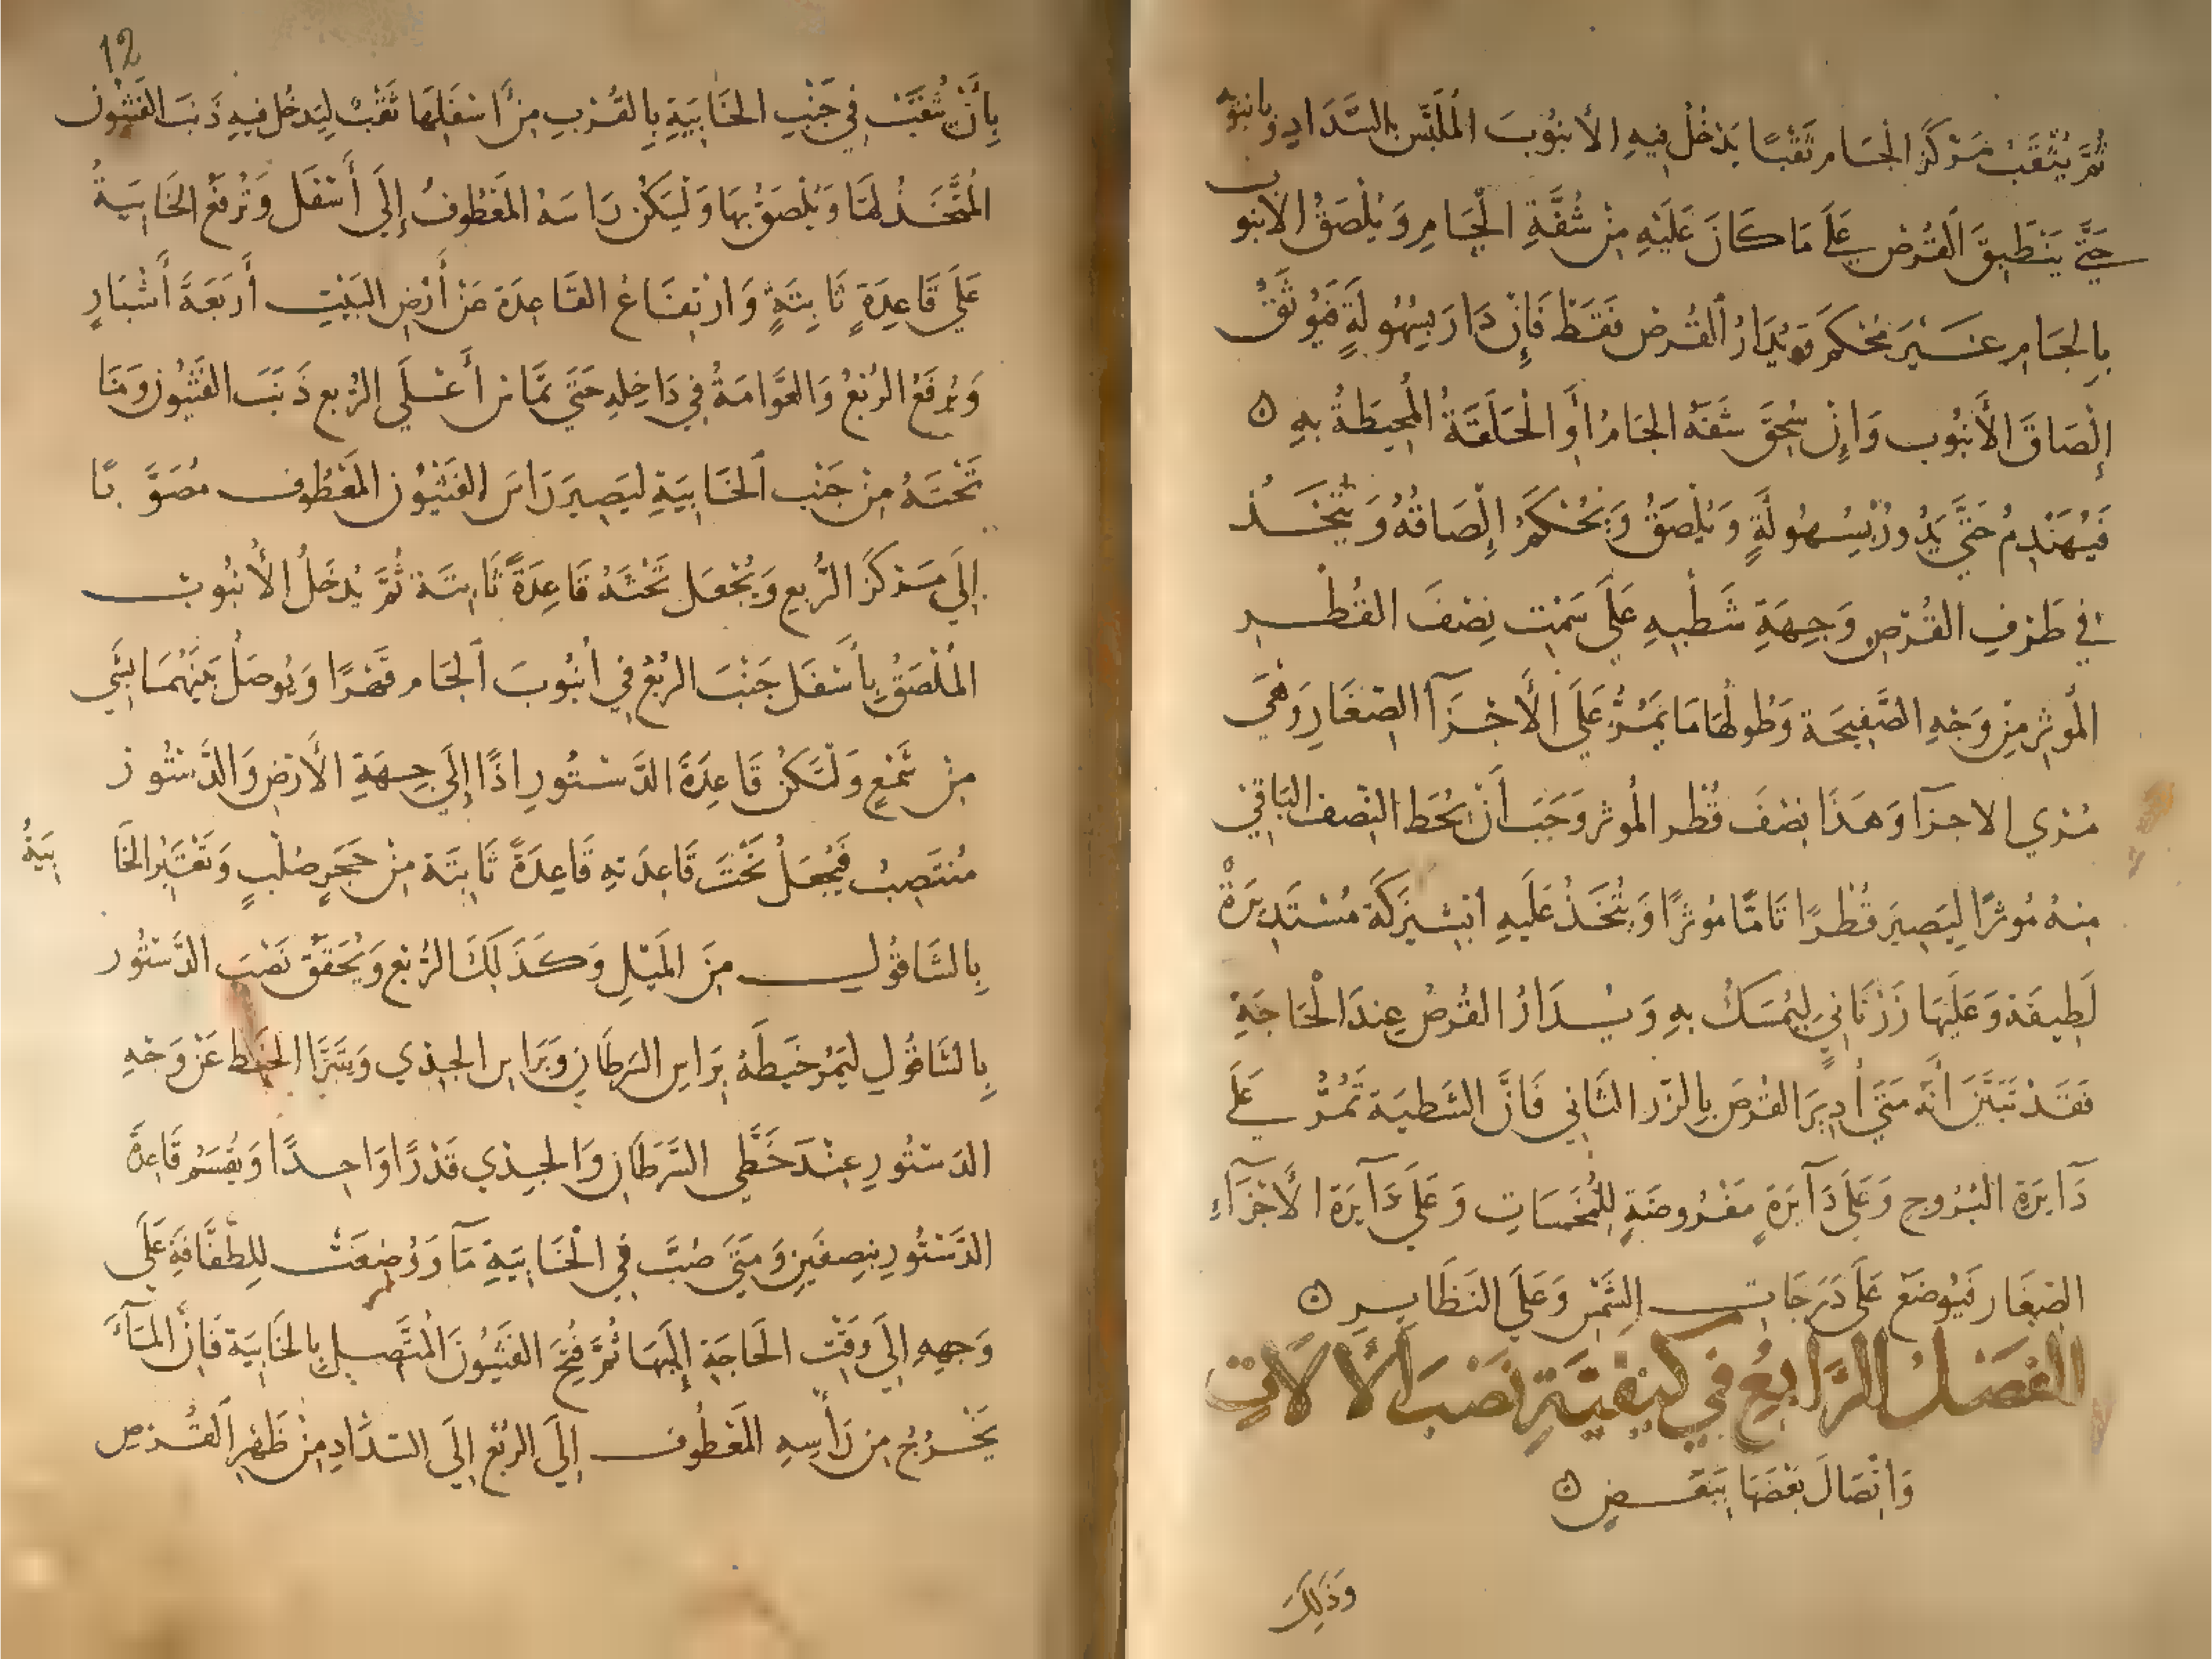 ثُمَّ يُثْقَبُ مَرْكَزُ الْجَامِ ثَقْبًا يَدْخُلُ فِيهِ الأنْبُوبَ الْمُلَبَّس بِالسَّدَادِ
حَتَّى يَنْطَبِقَ الْقُرْصِ عَلَى مَا كَانَ عَلَيْهِ مِنْ شُقَّةِ الْجَامِ وَيُلْصَقُ الانبو ب
بِالْجَامِ غَيْرَ مُحْكَمٍ وَيُدَارُ الْقُرْصُ فَقَطْ فَإِنْ دَارَ بِسُهُولَةٍ فَيُوثَقُ
إِلْصَاقَ الأَنْبُوب وَإِنْ سُحِقَ شَفَهُ الْجَامُ أَوِ الْحَلَقَةُ الْمُحِيطَةُ بِهِ ۞
فَيُهَنْدَمُ حَتَّى يَدُورُ بِسُهُولَةٍ وَيُلْصَقُ وَيُحْكَمُ إِلْصَاقُهُ وَيُتَّخَذُ
فِي طَرَفِ الْقُرْصِ وَجِهَةِ شَطْبِهِ عَلَى سَمْتِ نِصْفَ الْقُطْرِ
الْمُوثِرِ مِنْ وَجْهِ الصَّفِيحَة وَطُولُهَا مَا يَمُرُّ عَلَى الْأَجْزَآ الصِّغَارِ وَهِيَ
مُرِي الاجزَآ وَهَذَا نِصْفَ قُطْرِ الْمُوثر وَجَبَ أَنْ يُحَط النِّصْف الْبَاقِي
مِنهُ مُوثرًا لِيَصِيرَ قُطْرًا تَامًّا مُوثرًا وَيُتَّخَذُ عَلَيهِ مُسْتَدِيرَةٌ
لَطِيفَة وَعَلَيْهَا زَرْ ثَانِي لِيُمْسَكُ بِهِ وَيُدَارُ الْقُرْصُ عِندَ الْحَاجَةِ
فَقَدْ تَبَيَّنَ أَنَّهُ مَتَى أُدِيرَ الْقُرْصَ بِالزَّر الثَّانِي فَانَّ الشَّطِيَة تَمُرُّ عَلَى
دَآيرَةِ الْبُرُوجِ وَعَلَى دَآيرَةٍ مَفْرُوضَةٍ لِلْمُخَمَّسَاتِ وَعَلَى دَآيرَة الأَجْزَآءِ
الصِّغَارِ فَيُوضَعُ عَلَى دَرَجَاتِ الشَّمْسِ وَعَلَى النَّظَايِرِ ۞
الفَصْلُ الرَّابِعُ فِي كَيْفِيَّةِ نَصْبِ الآلَاتِ
وَاتِّصَالَ بَعْضَهَا بِبَعْضٍ ۞
وَذَلِكَ
12
بِأَنْ يُثْقَبَ فِي جَنْبِ الْخَابِيَةِ بِالقُرْبِ مِنْ اسْفَلِهَا ثَقْبٌ لِيَدخُل فِيهِ ذَنَبَ الْفَثْيُونِ
الْمُتَّخَذُ لَهَا وَيُلْصَقُ بِهَا وَلْيَكُنْ رَاسَهُ الْمَعْطُوفُ إِلَى أَسْفَلَ وَتُرْفَعُ الْخَابِيَةُ
عَلَى قَاعِدَةٍ ثَابِتَةٍ وَارْتِفَاعُ الْقَاعِدَةَ عَنْ أَرْضِ الْبَيْتِ أَرْبَعَةَ أَشْبَارٍ
وَيُرفَعُ الرُّبْعُ وَالْعَوَّامَةُ فِي دَاخِلِهِ حَتَّى يَمَّاس أَعْلَى الرُّبع ذَنَبَ الفَثْيُونِ وَمَا
تَحْتَهُ مِنْ جَنْب الْخَابِيَةِ لِيَصِيرَ رَاسَ الفَثْيُونِ الْمَعْطُوفِ مُصَوَّبًا
إِلَى مَرْكَزَ الرُّبعِ وَيُجْعَل تَحْتَهُ قَاعِدَةً ثَابِتَة ثُمَّ يُدخَلُ الأُنبُوبُ
الْمُلْصَقُ بِأَسْفَل جَنْبَ الرُّبْعِ فِي أُنْبُوبَ الْجَامِ قَهْرًا وَيُوصَلُ بَيْنَهُمَا بِشَيْ
مِنْ شَمْعٍ وَلْتَكُنْ قَاعِدَةُ الدَّسْتُورِ اذًا إِلَى جِهَةِ الأَرْضِ وَالدَّسْتُور
مُنْتَصِبُ فَيُجْعَلُ تَحْتَ قَاعِدَتِهِ قَاعِدَةً ثَابِتَة مِنْ حَجَرٍ صُلْبٍ وَتُعْتَبَرُ الْخَا بِيَةُ
بِالشَّاقُولِ مِنَ الْمَيْلِ وَكَذَلِكَ الرُّبْع وَيُحَقَّقُ نَصْبَ الدَّسْتُور
بِالشَّاقُولِ لِيَمُرَ خَيطَهُ بِرَاسِ السَّرطَانِ وَبَرَاسِ الجدْي وَيَتَبَرَّا الْخَيْط عَنْ وَجْهِ
الدَّسْتُورِ عِنْدَ خَطَّي السَّرَطَانِ وَالجدْي قَدْرًا وَاحِدًا وَيُقْسَمُ قَاعِدَةُ
الدَّسْتُورِ بِنِصفَينِ وَمَتَى صُبَّ فِي الْخَابِيَةِ مَآ وَوُضِعَتْ لِلطَّفَّافَةِ عَلَى
وَجهِهِ إِلَى وَقْتِ الحَاجَةِ إِلَيْهَا ثُمَّ فُتِحَ الفَثْيُونَ الْمُتَّصِلِ بِالْخَابِيَةِ فَانَّ الْمَآءَ
يَخْرُجُ مِن رَأْسِهِ الْمَعْطُوفِ إِلَى الرُّبْعِ إِلَى السَّدَّادِ مِنْ ظَهْرِ الْقُرْصِ